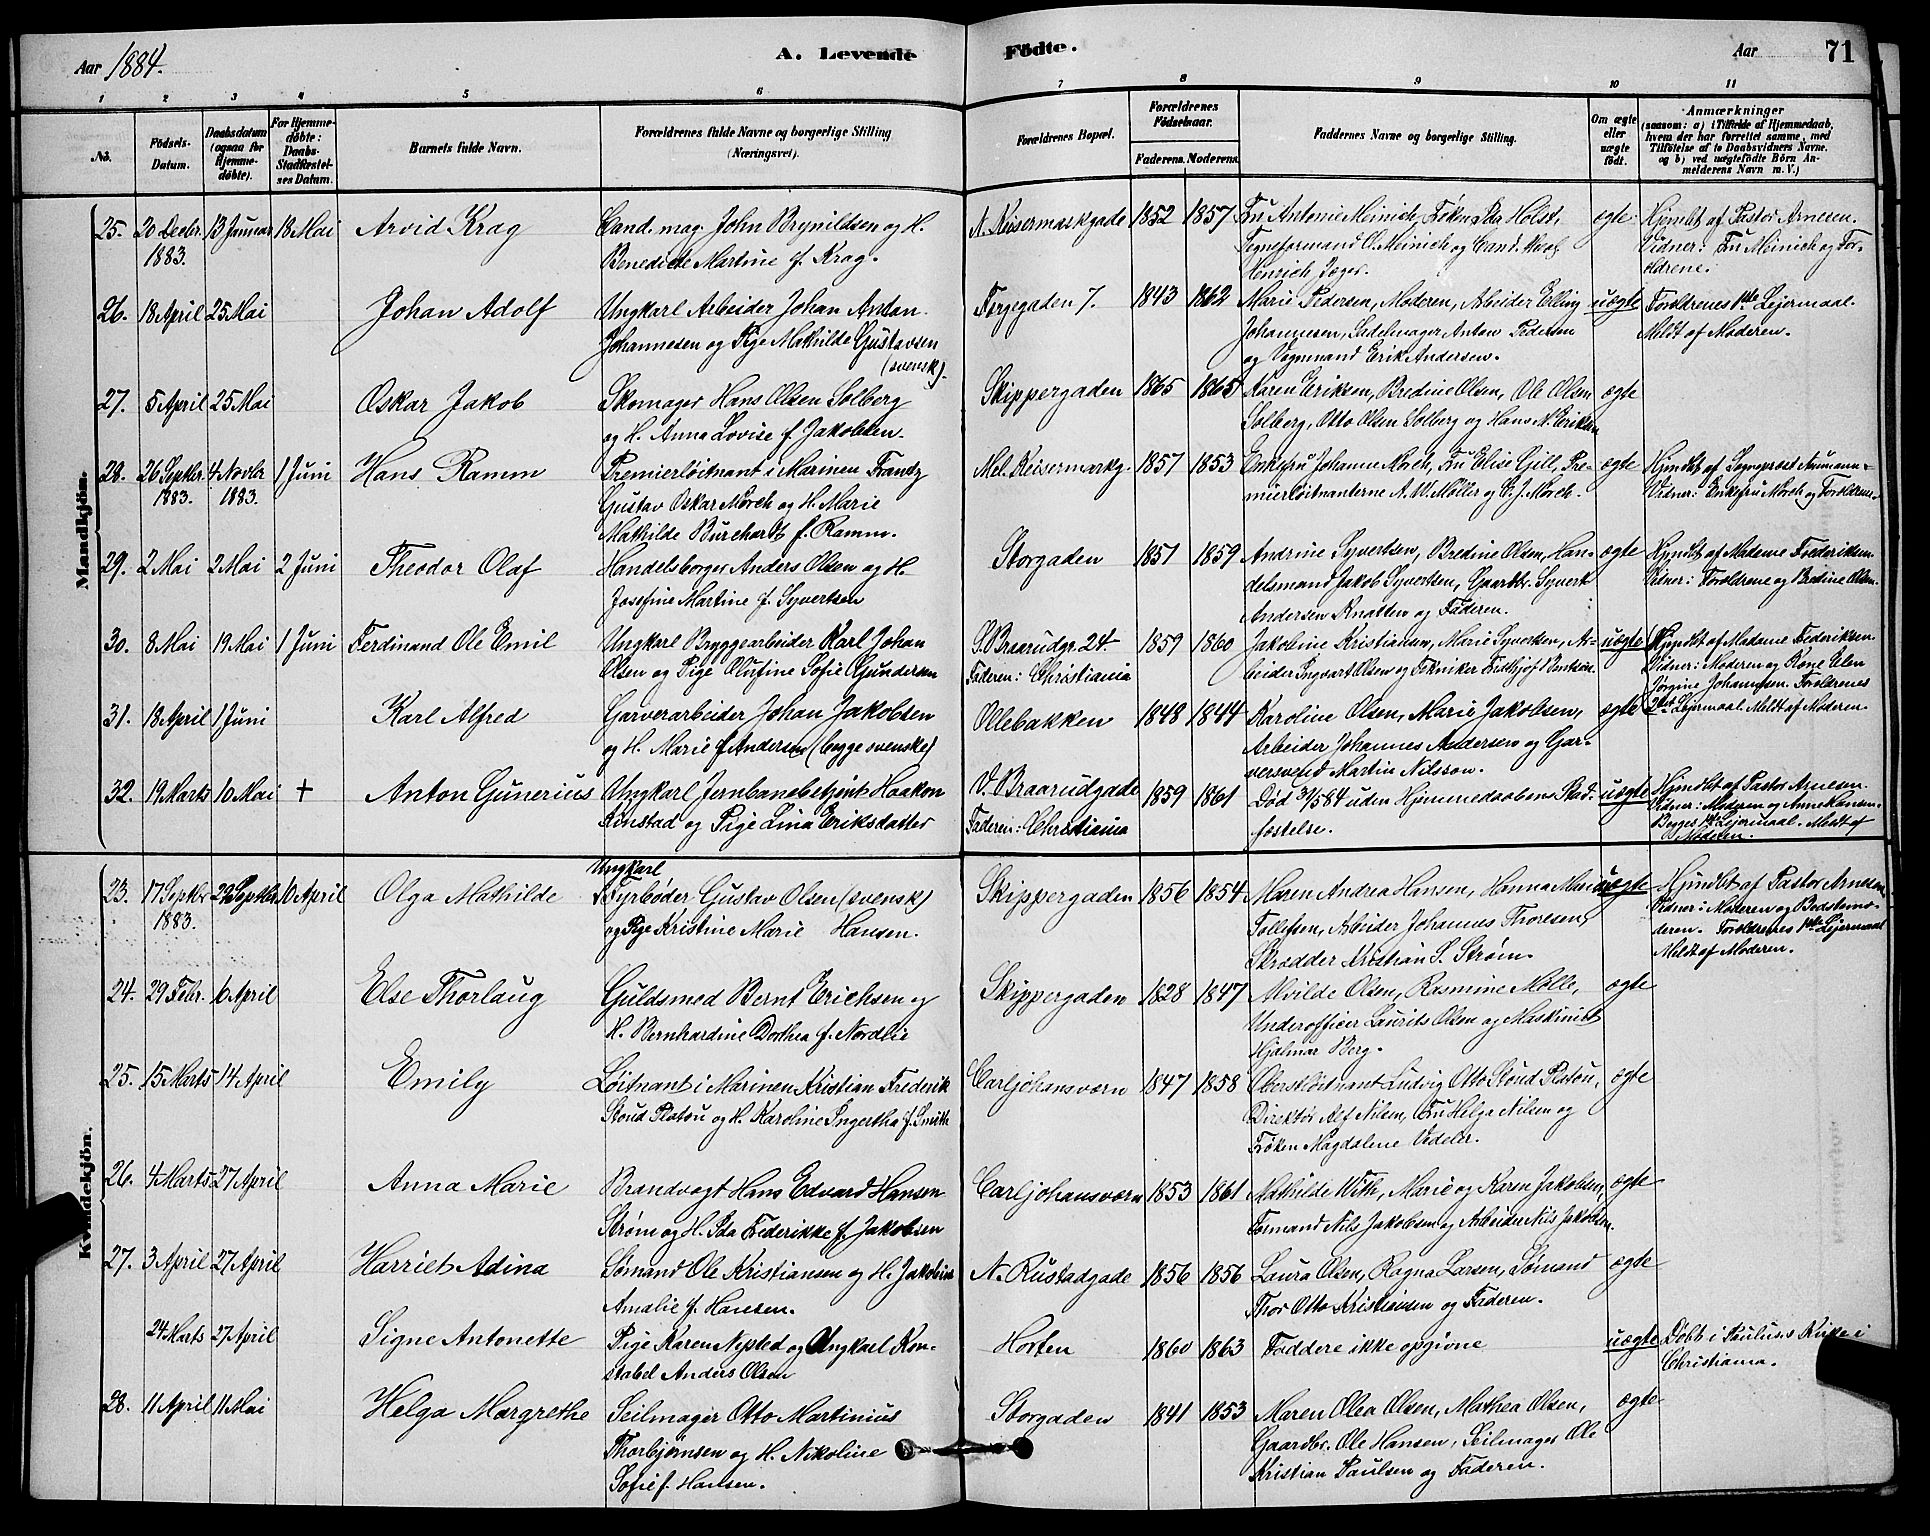 Aar 1884.
A. Levende
Födte.
Aar
71
1 2 3 4 5 6 7 8 9 10 11
No.
Födsels-Datum.
Daabsdatum (ogsaa for Hjemmedøbte).
For Hjemmedøbte: Daabs-Stadfæstelses Datum.
Barnets fulde Navn.
Forældrenes fulde Navne og borgerlige Stilling (Næringsvei).
Forældrenes Bopæl.
Forældrenes Födselsaar.
Faderens. Moderens.
Faddernes Navne og borgerlige Stilling.
Om ægte eller uægte født.
Anmærkninger
(saasom: a) i Tilfælde af Hjemmedaab, hvem der har forrettet samme, med Tilföielse af to Daabsvidners Navne. og b) ved uægtefödte Börn Anmelderens Navn m. V.)
Mandkjön.
25. 20 Decbr. 13 Januar 18 Mai Arvid Krag Cand. mag. John Brynildsen og H. N. Keisermarkgade 1852 1857 Fru Antonie Meinich, Frøken Ida Holst, ægte Hjmdbt af Pastor Arnesen.
1883. Benedicte Martine f. Krag. Tegneformand O. Meinich og Cand. Vidner: Fru Meinich og For-
Henrich Jæger. ældrene.
26. 18 April 25 Mai Johan Adolf Ungkarl Arbeider Johan Anton Færgegaden 7. 1843 1862 Marie Pedersen, Moderen, Arbeider Erling uægte Forældrenes 1ste Leiermaal.
Johannesen og Pige Mathilde Gustavsen Johannesen, Sadelmager Anton Pedersen Meldt af Moderen.
(svensk). og Vognmand Erik Andersen.
27. 5 April 25 Mai Oskar Jakob Skomager Hans Olsen Solberg Skippergaden 1865 1865 Karen Eriksen, Bredine Olsen, Ole Olsen ægte
og H. Anna Lovise f. Jakobsen. Solberg, Otto Olsen Solberg og Hans N. Eriksen
28. 26 Septbr 4 Novbr 1 Juni Hans Ramm Premierløitnant i Marinen Frantz Mel. Keisermarkg. 1857 1853 Enkefru Johanne Mørch, Fru Elise Gjill, Pre- ægte Hjmdbt af Sogneprest Aumann.
1883. 1883. Gustav Oskar Mørch og H. Marie mierløitnanterne A. W. Møller og C. J. Mørch. Vidner: Enkefru Mørch og Forældrene.
Mathilde Burchardt f. Ramm.
29. 2 Mai 2 Mai 2 Juni Theodor Olaf Handelsborger Anders Olsen og H. Storgaden 1857 1859 Andrine Syvertsen, Bredine Olsen, Han- ægte Hjmdbt af Madame Frederiksen
Josefine Martine f. Syvertsen delsmand Jakob Syvertsen, Gaardbr. Syvert Vidner: Forældrene og Bredine Olsen.
Andersen Knatten og Faderen.
30. 8 Mai 19 Mai 1 Juni Ferdinand Ole Emil Ungkarl Bryggearbeider Karl Johan S. Braarudgr. 24. 1859 1860 Jakobine Kristiansen, Marie Syvertsen, Ar- uægte Hjmdbt af Madame Frederiksen
Olsen og Pige Olufine Sofie Gundersen Faderen: Christiania beider Ingvart Olsen og Tekniker Fridtjof Bentsen. Vidner: Moderen og Kone Elen
Jørgine Johannesen. Forældrenes
31. 18 April 1 Juni Karl Alfred Garverarbeider Johan Jakobsen Ollebakken 1848 1844 Karoline Olsen, Marie Jakobsen, ægte 2det Leiermaal. Meldt af Moderen.
og H. Marie f. Andersen (begge svenske) Arbeider Johannes Andersen og Gar-
versvend Martin Nilsson.
32. 19 Marts 10 Mai + Anton Gunerius Ungkarl Jernbanebetjent Haakon V. Braarudgade 1859 1861 Død 3/5 84 uden Hjemmedaabens Stad- uægte Hjmdbt af Pastor Arnesen.
Finstad og Pige Lina Eriksdatter Faderen: Christiania fæstelse. Vidner: Moderen og Anne Hansen.
Begges 1ste Leiermaal. Meldt af
Moderen.
Kvindekjön.
23. 17 Septbr 29 Septbr 10 April Olga Mathilde Ungkarl Fyrbøder Gustav Olsen (svensk) Skippergaden 1856 1854 Maren Andrea Hansen, Hanna Marie uægte Hjmdbt af Pastor Arnesen
1883. og Pige Kristine Marie Hansen. Tollefsen, Arbeider Johannes Thoresen, Vidner: Moderen og Bedstemo-
Skrædder Kristian P. Strøm. deren. Forældrenes 1ste Leiermaal
Meldt af Moderen.
24. 29 Febr. 6 April Else Thorlaug Guldsmed Bernt Erichsen og Skippergaden 1828 1847 Alvilde Olsen, Rasmine Mølle, ægte
H. Bernhardine Dorthea f. Nordlie Underofficer Laurits Olsen og Maskinist
Hjalmar Berg.
25. 15 Marts 14 April Emily Løitnant i Marinen Kristian Frederik Carljohansværn 1847 1858 Oberstløitnant Ludvig Otto Stoud Platou, ægte
Stoud Platou og H. Karoline Ingertha f. Smith Direktør Alf Nilsen, Fru Helga Nilsen og
Frøken Magdalene Vedeler.
26. 4 Marts 27 April Anna Marie Brandvagt Hans Edvard Hansen Carljohansværn 1853 1861 Mathilde With, Marie og Karen Jakobsen, ægte
Strøm og H. Ida Frederikke f. Jakobsen Formand Nils Jakobsen og Arbeider Nils Jakobsen.
27. 3 April 27 April Harriet Adina Sømand Ole Kristiansen og H. Jakobine N. Rustadgade 1856 1856 Laura Olsen, Ragna Larsen, Sømand ægte
Amalie f. Hansen. Thor Otto Kristiansen og Faderen.
24 Marts 27 April Signe Antonette Pige Karen Nysted og Ungkarl Kon- Horten 1860 1863 Faddere ikke opgivne uægte Døbt i Paulus Kirke i
stabel Anders Olsen Christiania.
28. 11 April 11 Mai Helga Margrethe Seilmager Otto Martinius Storgaden 1841 1853 Maren Olea Olsen, Mathea Olsen, ægte
Thorbjørnsen og H. Nikoline Gaardbr. Ole Hansen, Seilmager Ole
Sofie f. Hansen. Kristian Paulsen og Faderen.